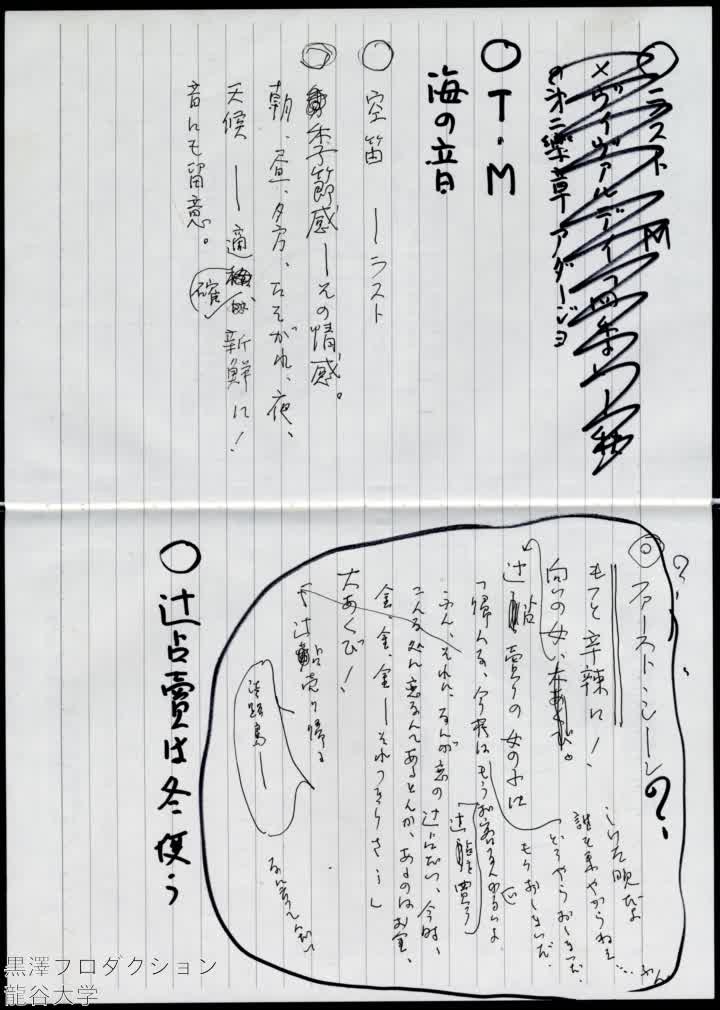 ○ラスト M
×ヴィヴァルディ「四季」
の第二楽章アダージョ
○T・M
海の音
○空笛 ーラスト
◎季節感ーその情感。
朝、昼、夕方、たそがれ、夜、
天候ー適確、新鮮に!
音にも留意。
?
◎ファースト・シーン?
もっと辛辣に!
向いの女、大あくび。
辻占売りの女の子に
「帰んな、今夜はもうお客なんかないよ
ふん、それに、なんが恋の辻占だい、今時、
こんな処に恋なんてあるもんか、あるのはお金、
金、金、金ーそれっきりさ!」
大あくび!
辻占売り帰る
淡路島ー
しけた晩だよ
誰も来やがらねえ…
どうやらおしまいだ
もうおしまいだ。
辻占を買う
○辻占賣は冬使う
黒澤プロダクション
龍谷大学